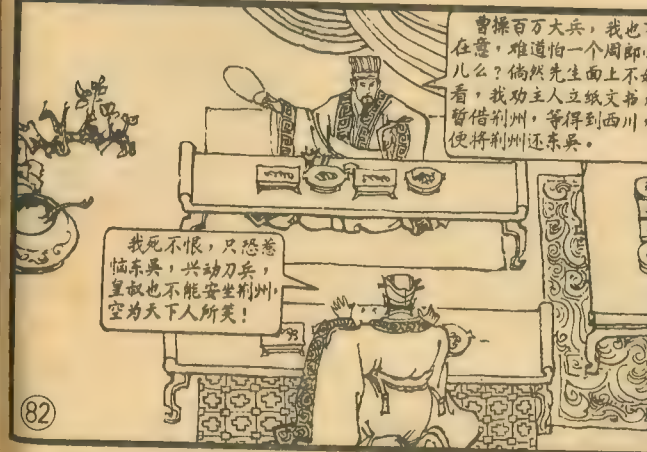 曹操百万大兵，我也
在意，难道怕一个周郎
儿么？倘然先生面上不
看，我劝主人立纸文书
暂借荆州，等得到西川，
便将荆州还东吴。
我死不恨，只恐惹
恼东吴，兴动刀兵，
皇叔也不能安坐荆州，
空为天下人所笑！
82